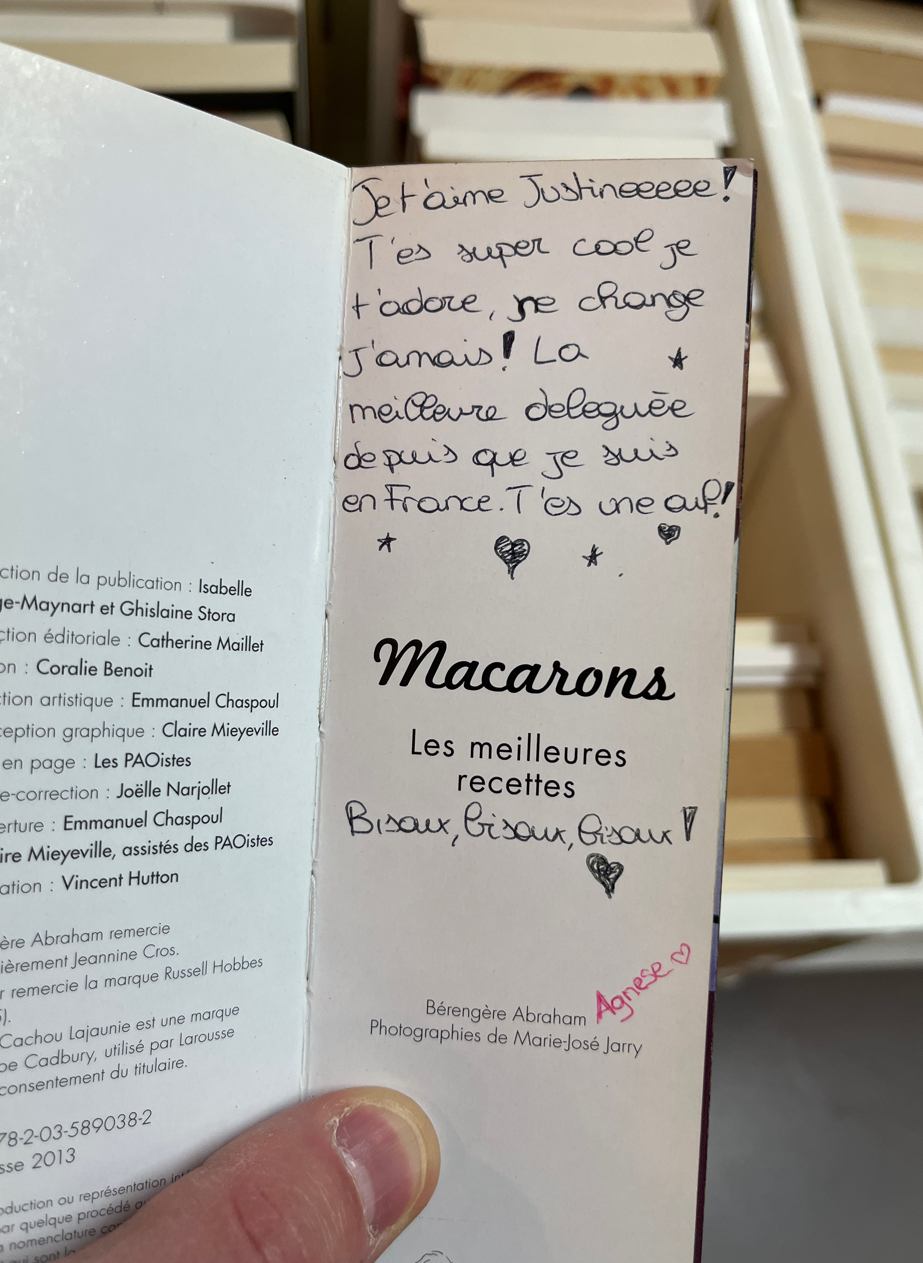 Je t'aime Justineeeee!
T'es super cool je
t'adore, ne change
J'amais! La
meilleure deleguée
depuis que je suis
en France. T'es une ouf!
Macarons
Les meilleures
recettes
Bisoux, bisoux, bisoux!
Agnese
Bérengère Abraham
Photographies de Marie-José Jarry
ction de la publication : Isabelle
ge-Maynart et Ghislaine Stora
ction éditoriale : Catherine Maillet
on : Coralie Benoit
ction artistique : Emmanuel Chaspoul
ception graphique : Claire Mieyeville
en page : Les PAOistes
e-correction : Joëlle Narjollet
erture : Emmanuel Chaspoul
ire Mieyeville, assistés des PAOistes
ation : Vincent Hutton
ère Abraham remercie
ièrement Jeannine Cros.
r remercie la marque Russell Hobbes
).
Cachou Lajaunie est une marque
pe Cadbury, utilisé par Larousse
consentement du titulaire.
78-2-03-589038-2
sse 2013
oduction ou représentation
ar quelque procédé
nomenclature